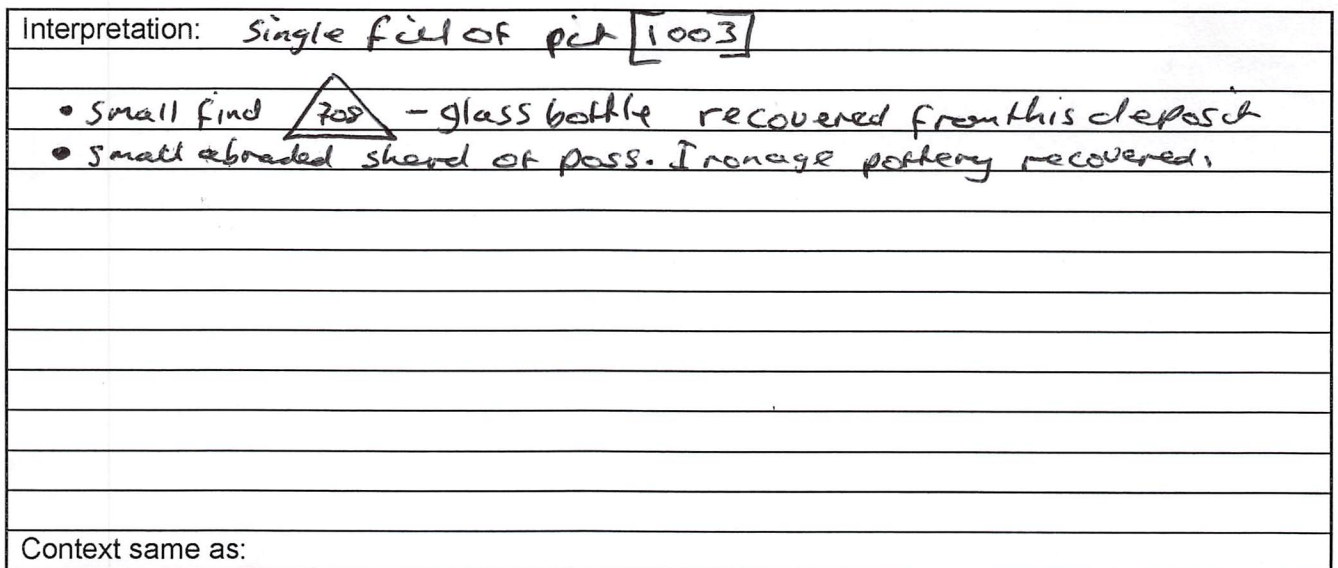 Interpretation: Single fill of pit [1003]
• small find 708 - glass bottle recovered from this deposit
• small abraded sherd of poss. Iron age pottery recovered.
Context same as: